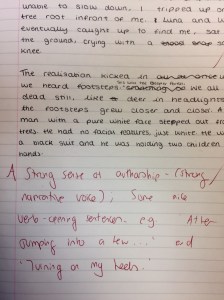 unable to slow down. I tripped up on
tree root infront of me. Luna and
eventually caught up to find me, sat
the ground, crying with a
knee.
The realisation kicked in
we heard footsteps. We all
dead still, like deer in headlights
the footsteps grew closer and closer. A
man with a pure white face stepped out
trees. He had no facial features, just white. He
a black suit and he was holding two children
hands
A strong sense of authorship - (strong
narrative voice); Some nice
verb-ing sentences. e.g. After
jumping into a few...' and
'Turning on my heels.'